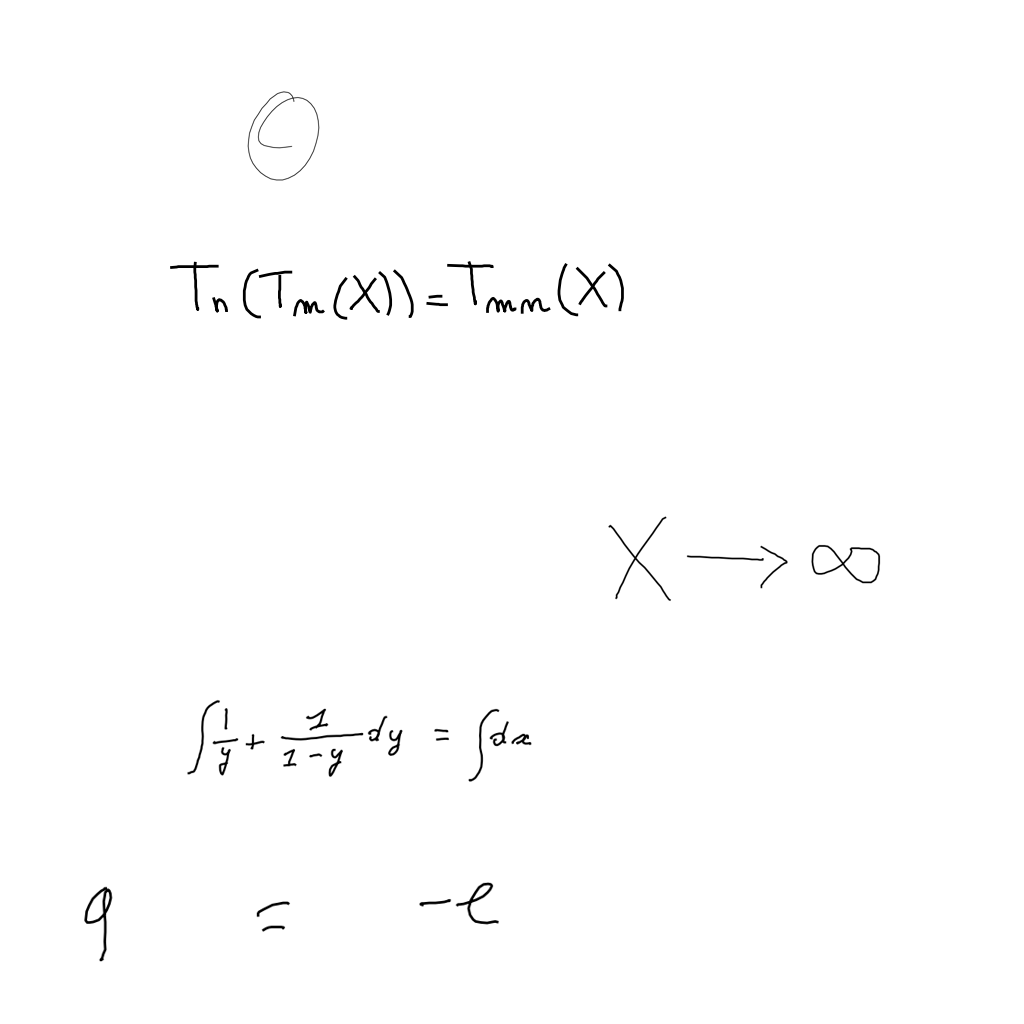 Θ
T_n(T_m(X))=T_{mn}(X)
X → ∞
∫ 1/y + 1/(1-y) dy = ∫ dx
q = -e